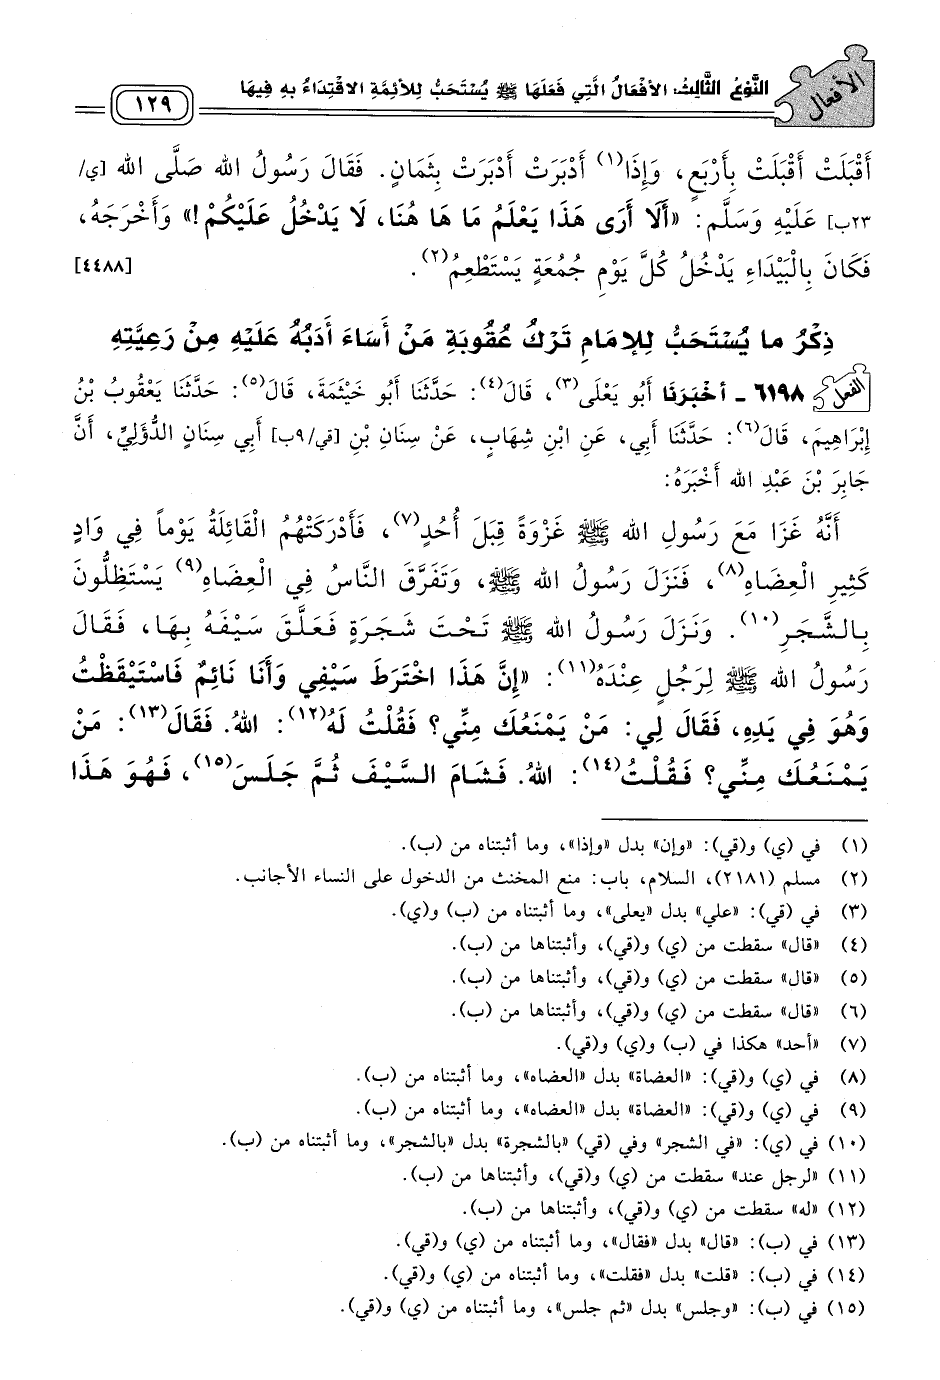 الأفعال
النَّوْعُ الثَّالِثُ: الأَفْعَالُ الَّتِي فَعَلَهَا ﷺ يُسْتَحَبُّ لِلأَئِمَّةِ الاقْتِدَاءُ بِهِ فِيهَا
١٢٩
أَقْبَلَتْ أَقْبَلَتْ بِأَرْبَعٍ، وَإِذَا(١) أَدْبَرَتْ أَدْبَرَتْ بِثَمَانٍ. فَقَالَ رَسُولُ الله صَلَّى الله [ي/
٢٣ب] عَلَيْهِ وَسَلَّم: «أَلَا أَرَى هَذَا يَعْلَمُ مَا هَا هُنَا، لَا يَدْخُلُ عَلَيْكُمْ!» وَأَخْرَجَهُ،
فَكَانَ بِالْبَيْدَاءِ يَدْخُلُ كُلَّ يَوْمِ جُمُعَةٍ يَسْتَطْعِمُ(٢). [٤٤٨٨]
ذِكْرُ ما يُسْتَحَبُّ لِلإمَامِ تَرْكُ عُقُوبَةِ مَنْ أَسَاءَ أَدَبُهُ عَلَيْهِ مِنْ رَعِيَّتِهِ
الفعل ٦١٩٨ - أخْبَرَنَا أَبُو يَعْلَى(٣)، قَالَ(٤): حَدَّثَنَا أَبُو خَيْثَمَةَ، قَالَ(٥): حَدَّثَنَا يَعْقُوبُ بْنُ
إِبْرَاهِيمَ، قَالَ(٦): حَدَّثَنَا أَبِي، عَنِ ابْنِ شِهَابٍ، عَنْ سِنَانِ بْنِ [قي/٩ب] أَبِي سِنَانٍ الدُّؤَلِيِّ، أَنَّ
جَابِرَ بْنَ عَبْدِ الله أَخْبَرَهُ:
أَنَّهُ غَزَا مَعَ رَسُولِ الله ﷺ غَزْوَةً قِبَلَ أُحُدٍ(٧)، فَأَدْرَكَتْهُمُ الْقَائِلَةُ يَوْماً فِي وَادٍ
كَثِيرِ الْعِضَاهِ(٨)، فَنَزَلَ رَسُولُ الله ﷺ، وَتَفَرَّقَ النَّاسُ فِي الْعِضَاهِ(٩) يَسْتَظِلُّونَ
بِالشَّجَرِ(١٠). وَنَزَلَ رَسُولُ الله ﷺ تَحْتَ شَجَرَةٍ فَعَلَّقَ سَيْفَهُ بِهَا، فَقَالَ
رَسُولُ الله ﷺ لِرَجُلٍ عِنْدَهُ(١١): «إِنَّ هَذَا اخْتَرَطَ سَيْفِي وَأَنَا نَائِمٌ فَاسْتَيْقَظْتُ
وَهُوَ فِي يَدِهِ، فَقَالَ لِي: مَنْ يَمْنَعُكَ مِنِّي؟ فَقُلْتُ لَهُ(١٢): اللهُ. فَقَالَ(١٣): مَنْ
يَمْنَعُكَ مِنِّي؟ فَقُلْتُ(١٤): اللهُ. فَشَامَ السَّيْفَ ثُمَّ جَلَسَ(١٥)، فَهُوَ هَذَا
(١) في (ي) و(قي): «وإن» بدل «وإذا»، وما أثبتناه من (ب).
(٢) مسلم (٢١٨١)، السلام، باب: منع المخنث من الدخول على النساء الأجانب.
(٣) في (قي): «علي» بدل «يعلى»، وما أثبتناه من (ب) و(ي).
(٤) «قال» سقطت من (ي) و(قي)، وأثبتناها من (ب).
(٥) «قال» سقطت من (ي) و(قي)، وأثبتناها من (ب).
(٦) «قال» سقطت من (ي) و(قي)، وأثبتناها من (ب).
(٧) «أحد» هكذا في (ب) و(ي) و(قي).
(٨) في (ي) و(قي): «العضاة» بدل «العضاه»، وما أثبتناه من (ب).
(٩) في (ي) و(قي): «العضاة» بدل «العضاه»، وما أثبتناه من (ب).
(١٠) في (ي): «في الشجر» وفي (قي) «بالشجرة» بدل «بالشجر»، وما أثبتناه من (ب).
(١١) «لرجل عند» سقطت من (ي) و(قي)، وأثبتناها من (ب).
(١٢) «له» سقطت من (ي) و(قي)، وأثبتناها من (ب).
(١٣) في (ب): «قال» بدل «فقال»، وما أثبتناه من (ي) و(قي).
(١٤) في (ب): «قلت» بدل «فقلت»، وما أثبتناه من (ي) و(قي).
(١٥) في (ب): «وجلس» بدل «ثم جلس»، وما أثبتناه من (ي) و(قي).